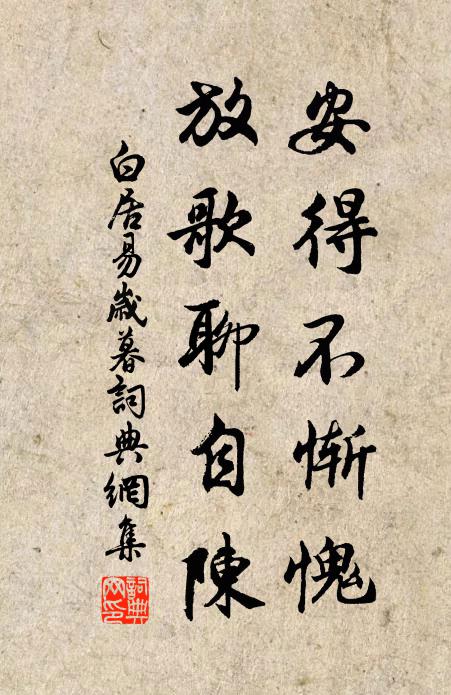 安得不慚愧
放歌聊自陳
白居易歲暮詞典網集
詞典
网印